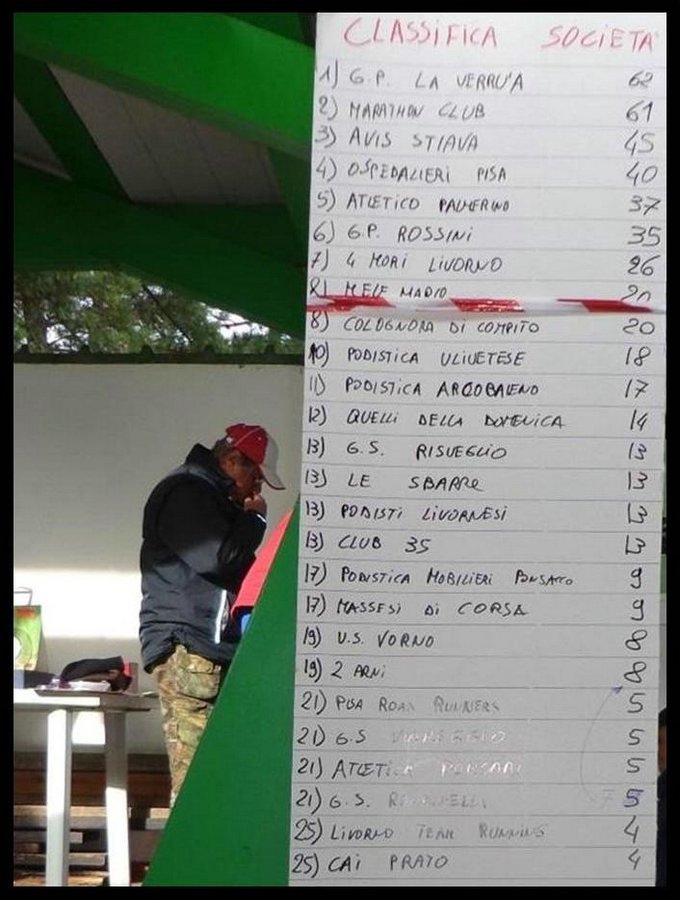 CLASSIFICA SOCIETA'
1) G.P. LA VERRU'A 62
2) MARATHON CLUB 61
3) AVIS STIAVA 45
4) OSPEDALIERI PISA 40
5) ATLETICO PALMERINO 37
6) G.P. ROSSINI 35
7) 4 MORI LIVORNO 26
8) MELE MARIO 20
8) COLOGNORA DI COMPITO 20
10) PODISTICA ULIVETESE 18
11) PODISTICA ARCOBALENO 17
12) QUELLI DELLA DOMENICA 14
13) G.S. RISVEGLIO 13
13) LE SBARRE 13
13) PODISTI LIVORNESI 13
13) CLUB 35 13
17) PODISTICA MOBILIERI PONSACCO 9
17) MASSESI DI CORSA 9
19) U.S. VORNO 8
19) 2 ARNI 8
21) PISA ROAD RUNNERS 5
21) G.S 5
21) ATLETICA 5
21) G.S. 5
25) LIVORNO TEAM RUNNING 4
25) CAI PRATO 4